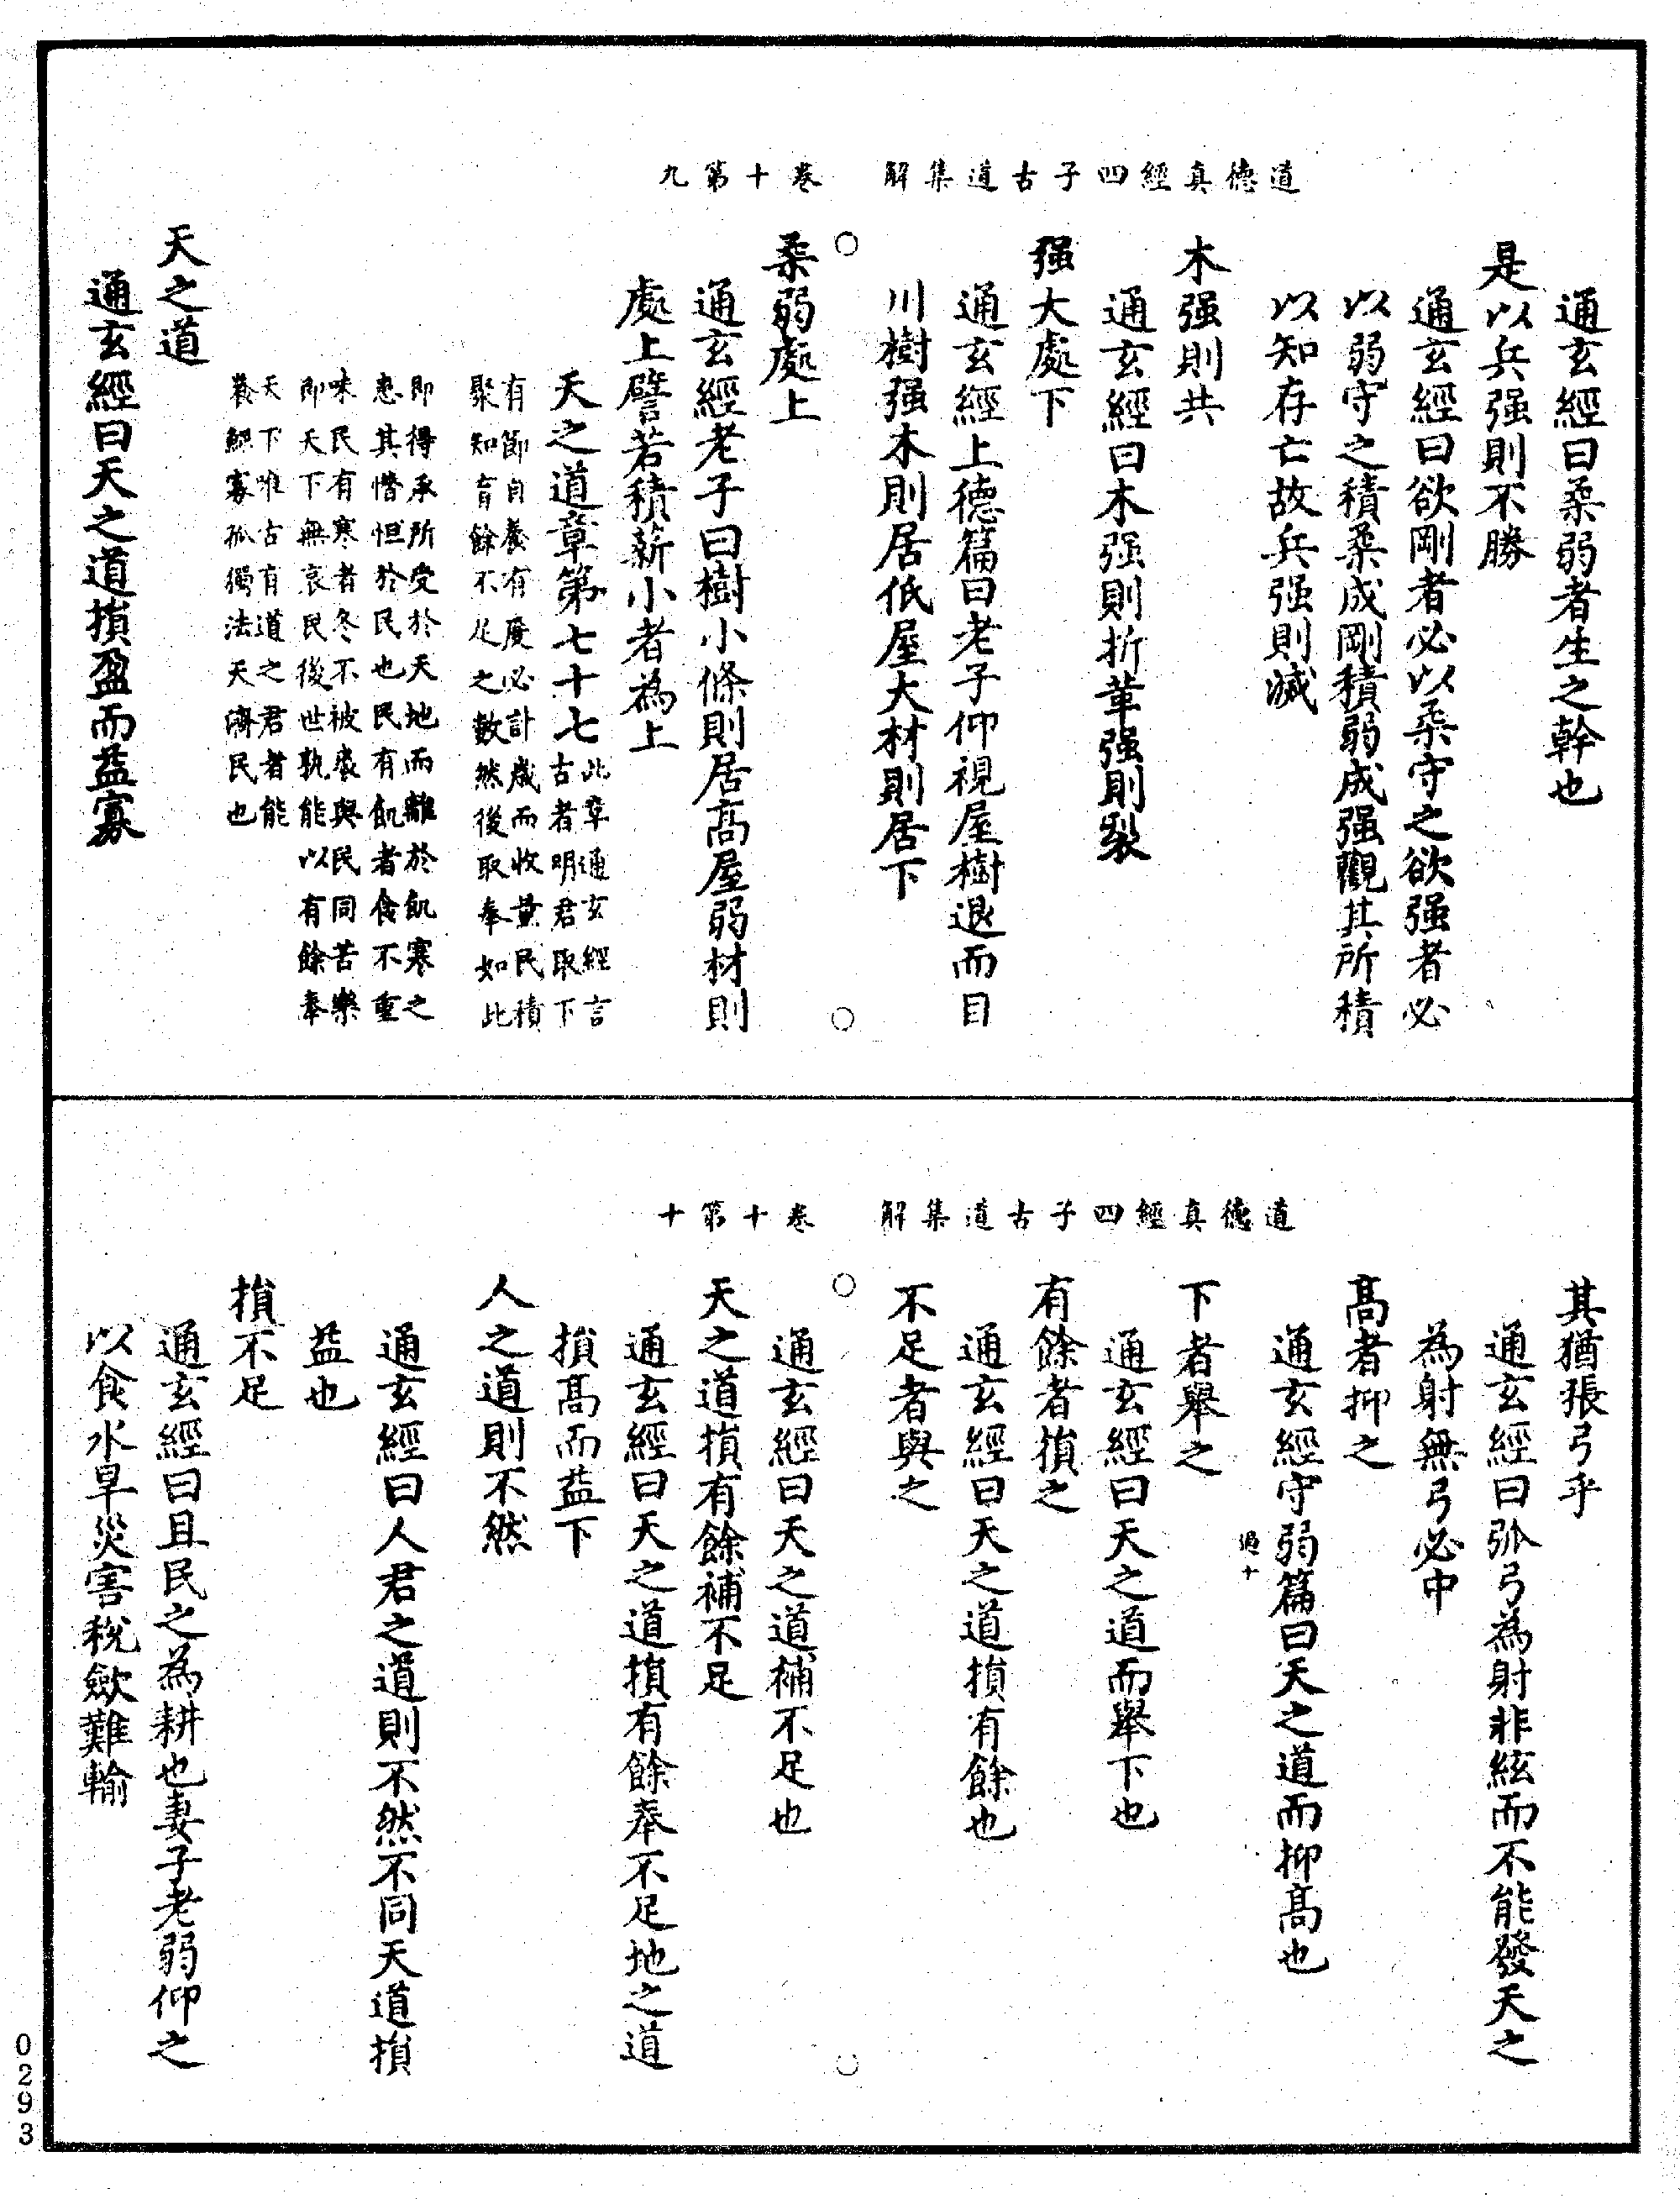 道德真經四子古道集解　卷十第九
通玄經曰柔弱者生之幹也
是以兵强則不勝
通玄經曰欲剛者必以柔守之欲强者必
以弱守之積柔成剛積弱成强觀其所積
以知存亡故兵强則滅
木强則共
通玄經曰木强則折革强則裂
强大處下
通玄經上德篇曰老子仰視屋樹退而目
川樹强木則居低屋大材則居下
柔弱處上
通玄經老子曰樹小條則居高屋弱材則
處上譬若積薪小者為上
天之道章第七十七
此章通玄經言
古者明君取下
有節自養有度必計歲而收量民積
聚知有餘不足之數然後取奉如此
即得承所受於天地而離於飢寒之
患其憯怛於民也民有飢者食不重
味民有寒者冬不被裘與民同苦樂
即天下無哀民後世孰能以有餘奉
天下唯古有道之君者能
養鰥寡孤獨法天濟民也
天之道
通玄經曰天之道損盈而益寡
道德真經四子古道集解　卷十第十
其猶張弓乎
通玄經曰弛弓為射非絃而不能發天之
為射無弓必中
高者抑之
通玄經守弱篇曰天之道而抑高也
過十
下者舉之
通玄經曰天之道而舉下也
有餘者損之
通玄經曰天之道損有餘也
不足者與之
通玄經曰天之道補不足也
天之道損有餘補不足
通玄經曰天之道損有餘奉不足地之道
損高而益下
人之道則不然
通玄經曰人君之道則不然不同天道損
益也
損不足
通玄經曰且民之為耕也妻子老弱仰之
以食水旱災害稅斂難輸
0293